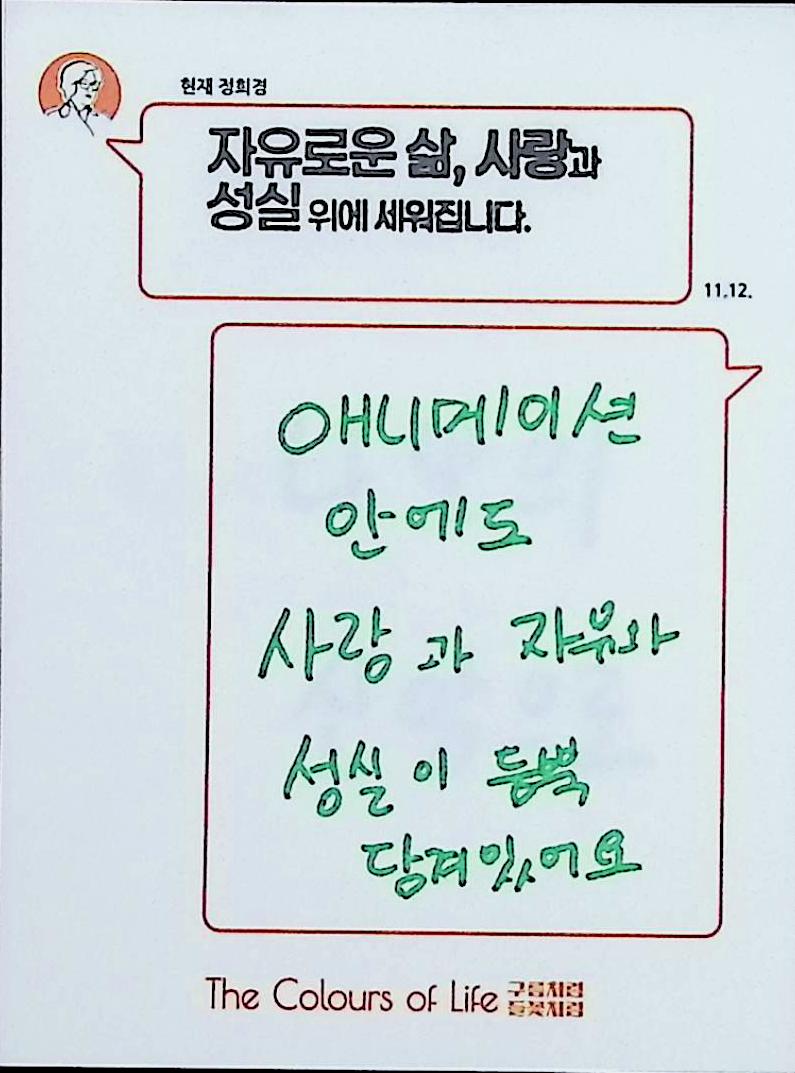 현재 정희경
자유로운 삶, 사랑과
성실 위에 세워집니다.
11.12.
애니메이션
안에도
사랑과 자유와
성실이 듬뿍
담겨있어요
The Colours of Life 구름처럼
들꽃처럼